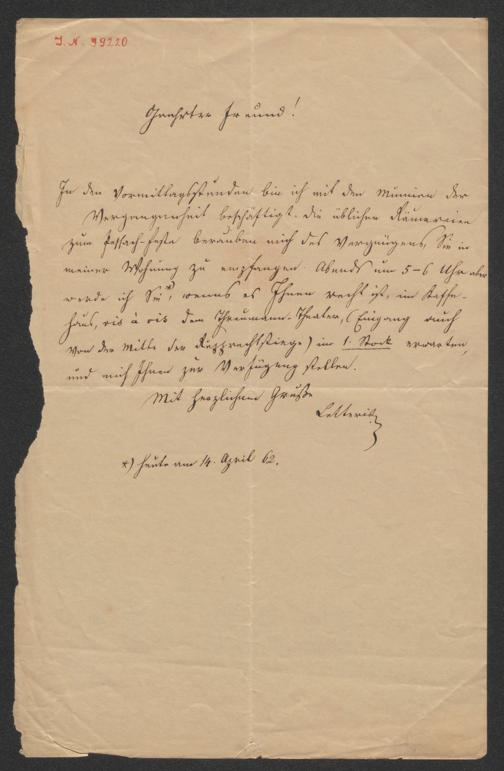 I. N. 39220
Geehrter Freund!
In den Vormittagsstunden bin ich mit den Mumien der
Vergangenheit beschäftigt. Die üblichen Räumereien
zum Pessach-Feste berauben mich des Vergnügens, Sie in
meiner Wohnung zu empfangen. Abends um 5-6 Uhr aber
werde ich Sie*), wenns es Ihnen recht ist, im Kaffe-
haus, vis à vis dem Theater, (Eingang auch
von der Mitte der Ruprechtsstiege) im 1. Stock erwarten,
und mich Ihnen zur Verfügung stellen.
Mit herzlichem Gruße
Letteris
*) heute am 14. April 62.